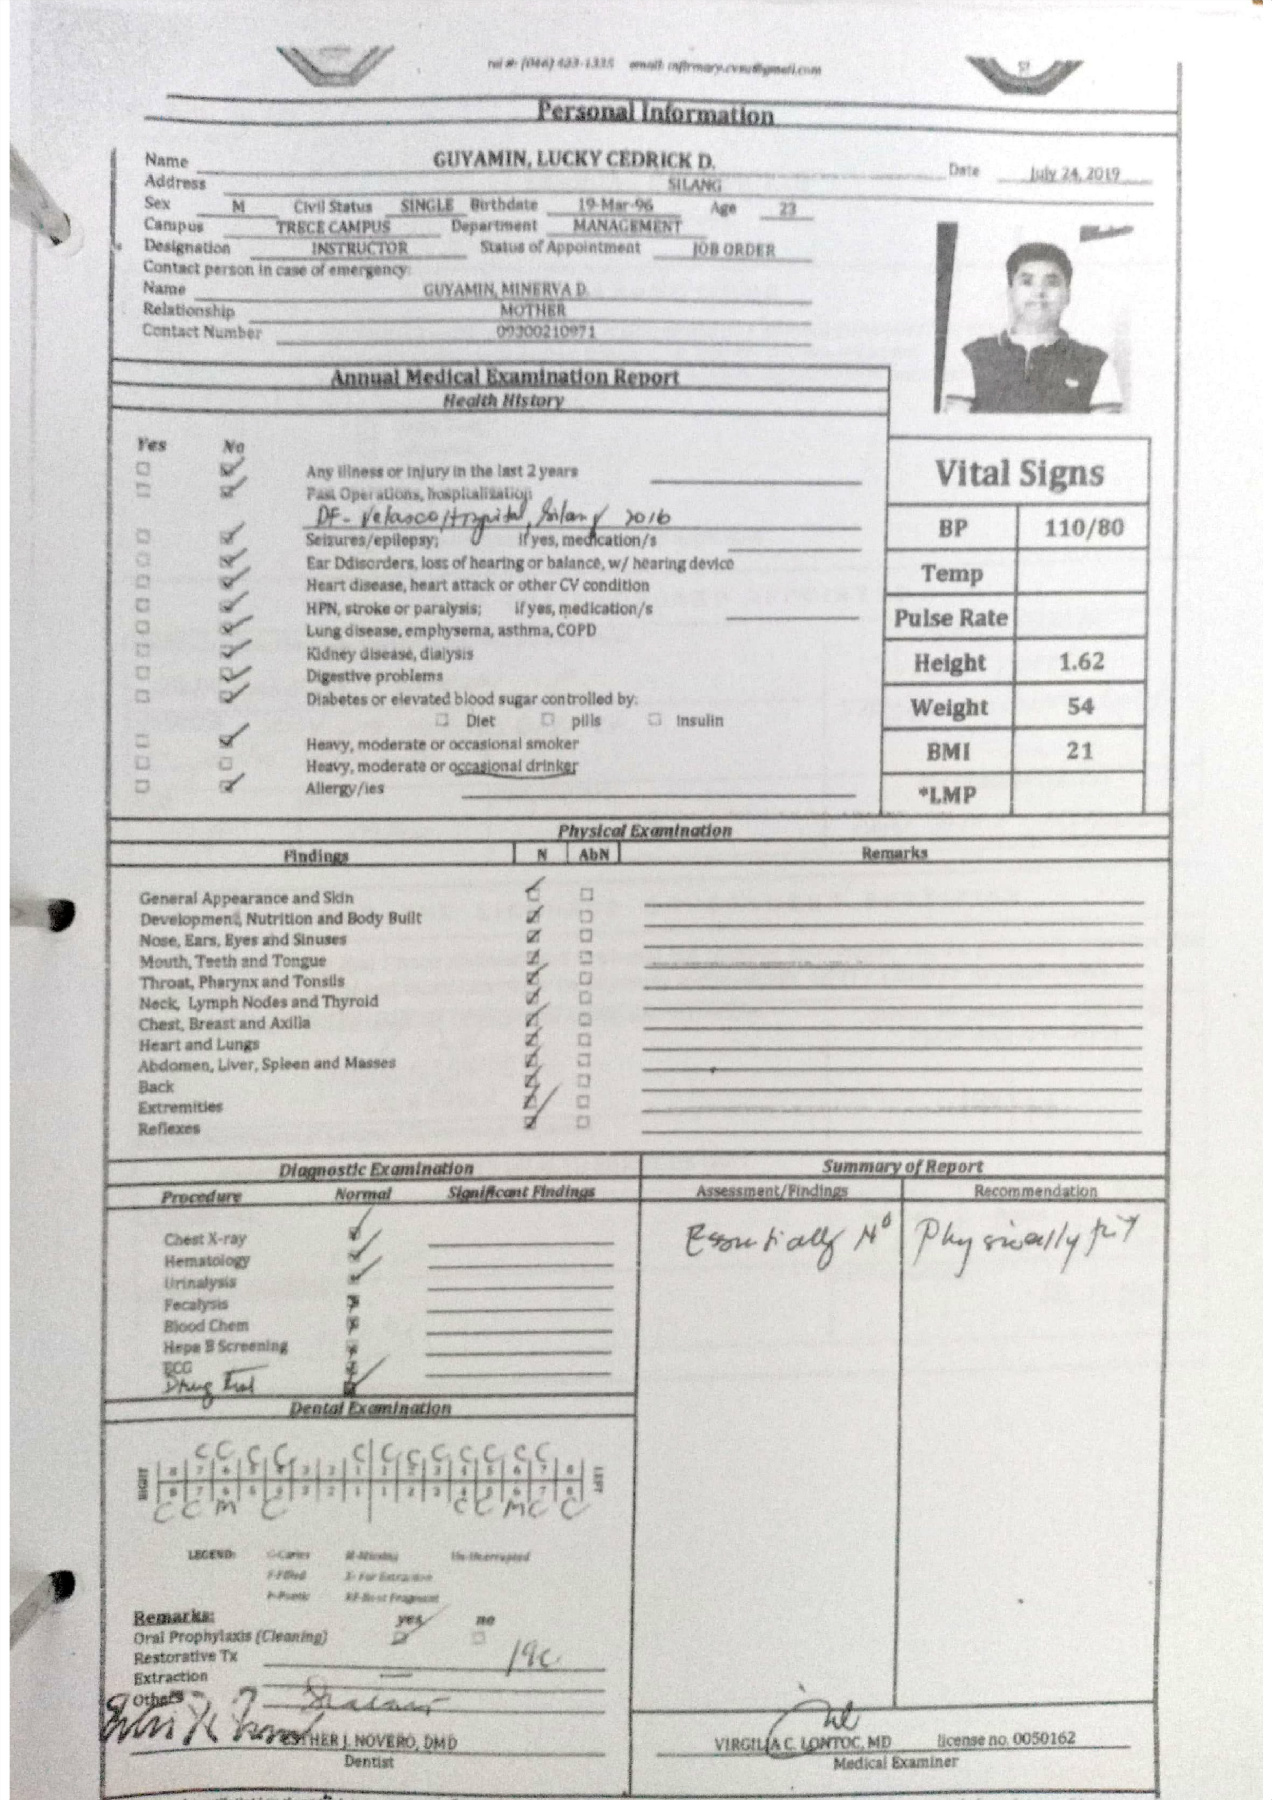 tel #: (046) 483-1335 email: infirmary.cvsu@gmail.com
Personal Information
Name GUYAMIN, LUCKY CEDRICK D. Date July 24, 2019
Address SILANG
Sex M Civil Status SINGLE Birthdate 19-Mar-96 Age 23
Campus TRECE CAMPUS Department MANAGEMENT
Designation INSTRUCTOR Status of Appointment JOB ORDER
Contact person in case of emergency:
Name GUYAMIN, MINERVA D.
Relationship MOTHER
Contact Number 09300210971
Annual Medical Examination Report
Health History
Yes No
Any illness or injury in the last 2 years
Past Operations, hospitalization
DF - Velasco Hospital, Silang 2016
Seizures/epilepsy; If yes, medication/s
Ear Ddisorders, loss of hearing or balance, w/ hearing device
Heart disease, heart attack or other CV condition
HPN, stroke or paralysis; if yes, medication/s
Lung disease, emphysema, asthma, COPD
Kidney disease, dialysis
Digestive problems
Diabetes or elevated blood sugar controlled by:
Diet pills insulin
Heavy, moderate or occasional smoker
Heavy, moderate or occasional drinker
Allergy/ies
Vital Signs
BP 110/80
Temp
Pulse Rate
Height 1.62
Weight 54
BMI 21
*LMP
Physical Examination
Findings N AbN Remarks
General Appearance and Skin
Development, Nutrition and Body Built
Nose, Ears, Eyes and Sinuses
Mouth, Teeth and Tongue
Throat, Pharynx and Tonsils
Neck, Lymph Nodes and Thyroid
Chest, Breast and Axilla
Heart and Lungs
Abdomen, Liver, Spleen and Masses
Back
Extremities
Reflexes
Diagnostic Examination
Procedure Normal Significant Findings
Chest X-ray
Hematology
Urinalysis
Fecalysis
Blood Chem
Hepa B Screening
ECG
Drug Test
Summary of Report
Assessment/Findings Recommendation
Essentially N Physically fit
Dental Examination
C C C C C C C C C C C C
RIGHT 8 7 6 5 4 3 2 1 1 2 3 4 5 6 7 8 LEFT
8 7 6 5 4 3 2 1 1 2 3 4 5 6 7 8
C C M C C C M C C
LEGEND: C-Caries M-Missing Un-Unerrupted
F-Filled X- For Extraction
P-Pontic RF-Root Fragment
Remarks: yes no
Oral Prophylaxis (Cleaning)
Restorative Tx
Extraction
Others
ESTHER J. NOVERO, DMD
Dentist
VIRGILIA C. LONTOC, MD license no. 0050162
Medical Examiner